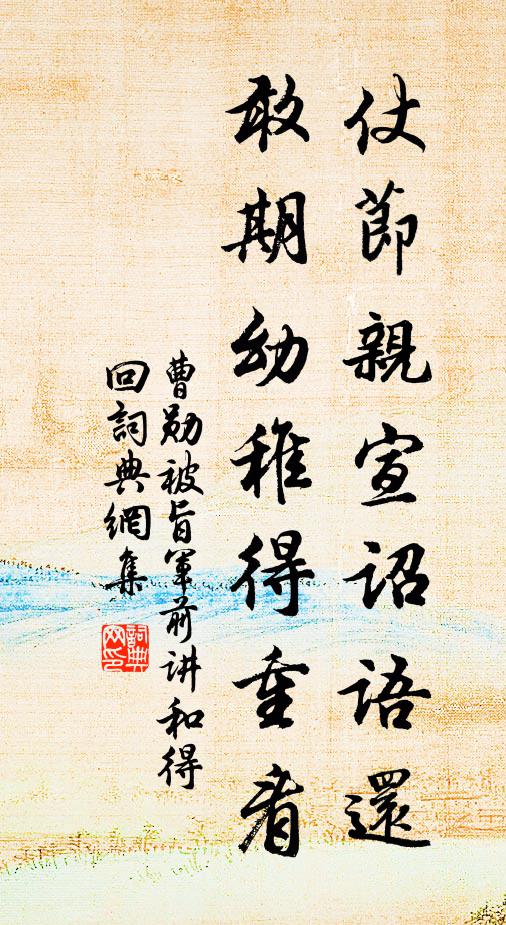 仗節親宣詔語還
敢期幼稚得重看
曹勛被旨軍前讲和得
回詞典網集
詞典
网印